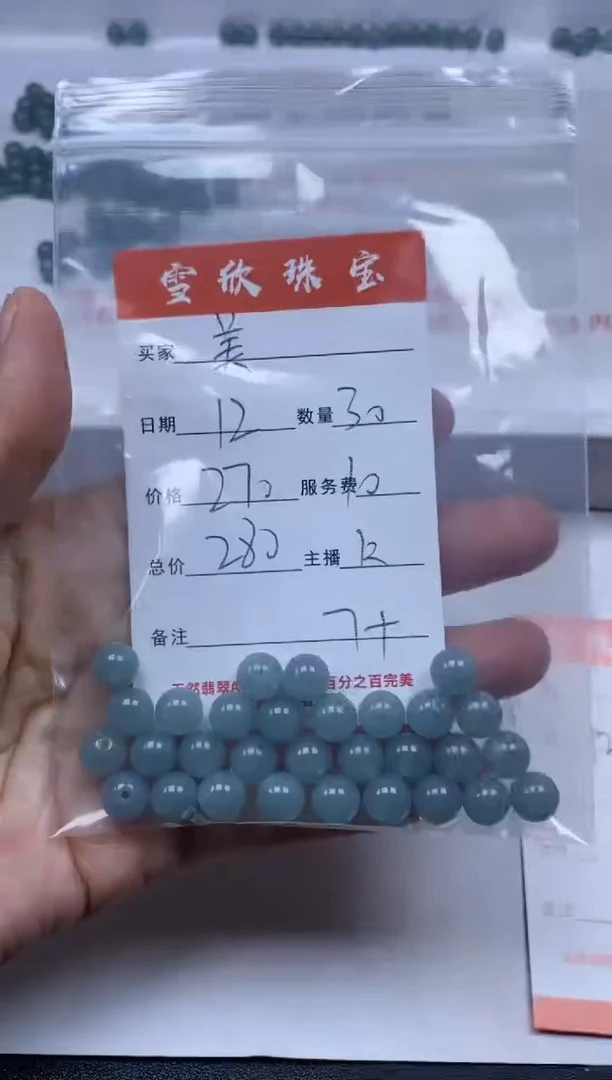 雪欣珠宝
买家 美
日期 12 数量 30
价格 270 服务费 10
总价 280 主播 k
备注 7+
天然翡翠A 百分之百完美